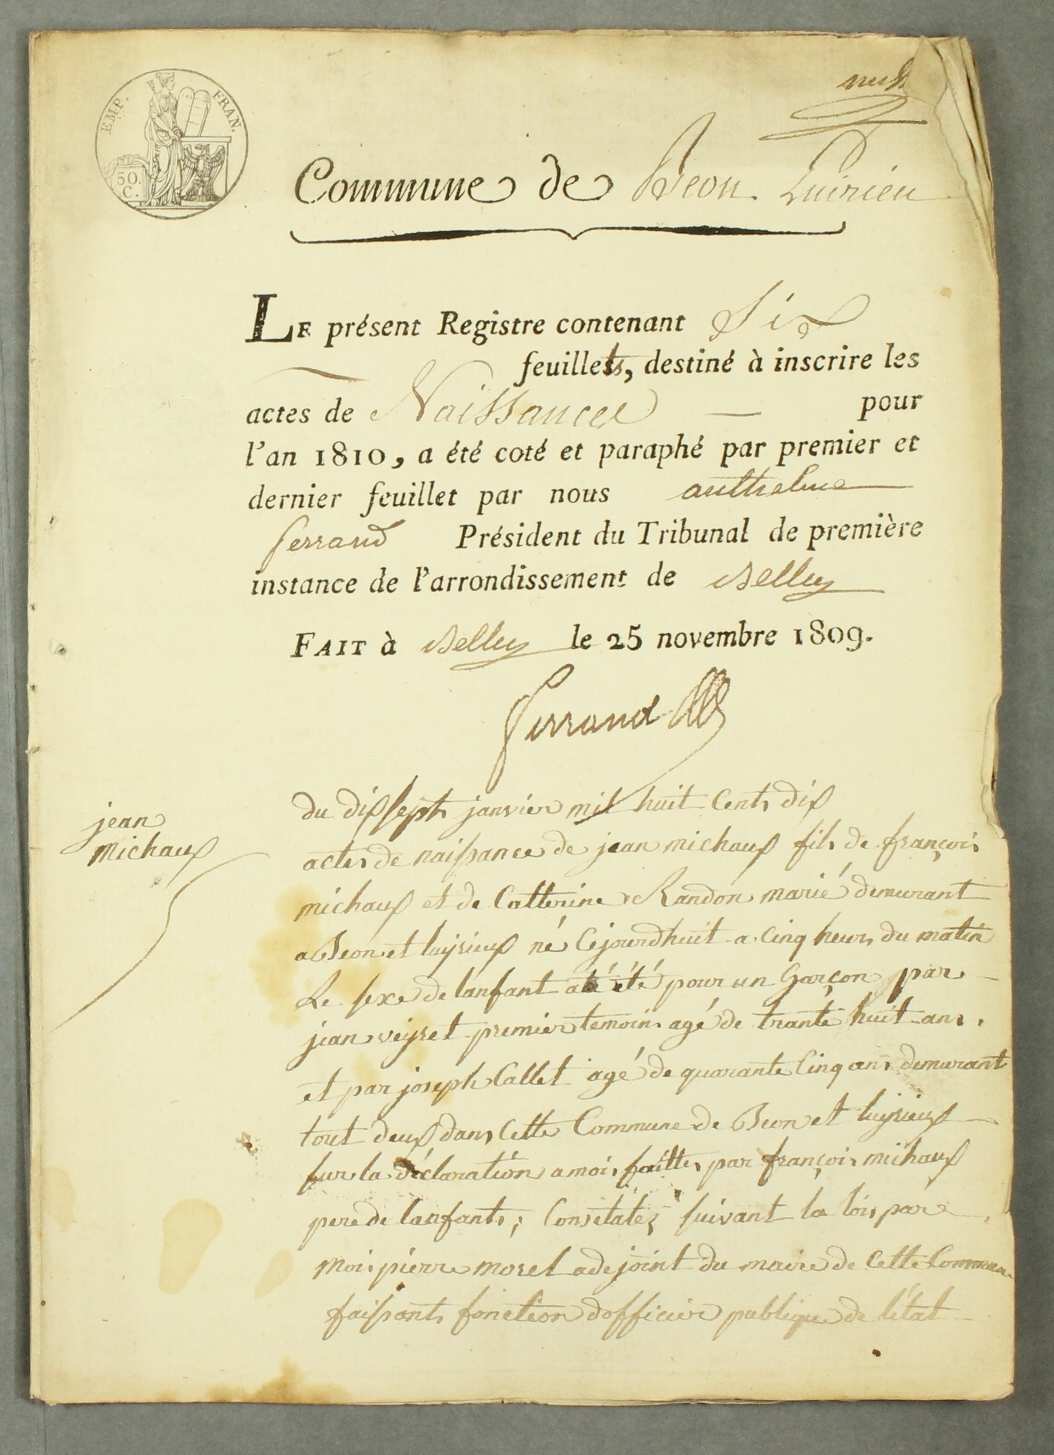 EMP. FRAN.
50.
C.
Commune de Beon Luirieu
LE présent Registre contenant Six
feuillets, destiné à inscrire les
actes de Naissances — pour
l'an 1810, a été coté et paraphé par premier et
dernier feuillet par nous anthelme
ferrand Président du Tribunal de première
instance de l'arrondissement de Belley
FAIT à Belley le 25 novembre 1809.
ferrand
jean
Michaux
du dixsept janvier mil huit Cents dix
actes de naissance de jean michaux fils de françois
michaux et de Catterine Randon marié demurant
a Beon et luyrieux né Cejourdhuit a Cinq heurs du matin
Le sexe de lanfant a été pour un Garçon par
jean veyret premier temoin agé de trante huit ans.
et par joseph Callet agé de quarante Cinq ans demurant
tout deux dans Cette Commune de Beon et luyrieux
sur la déclaration a mois faittes par françois mihaux
pere de lanfants; Constatéz suivant la lois par
Mois pierre morel adejoint du maire de Cette Commune
faissants fonction dofficier publique de létat